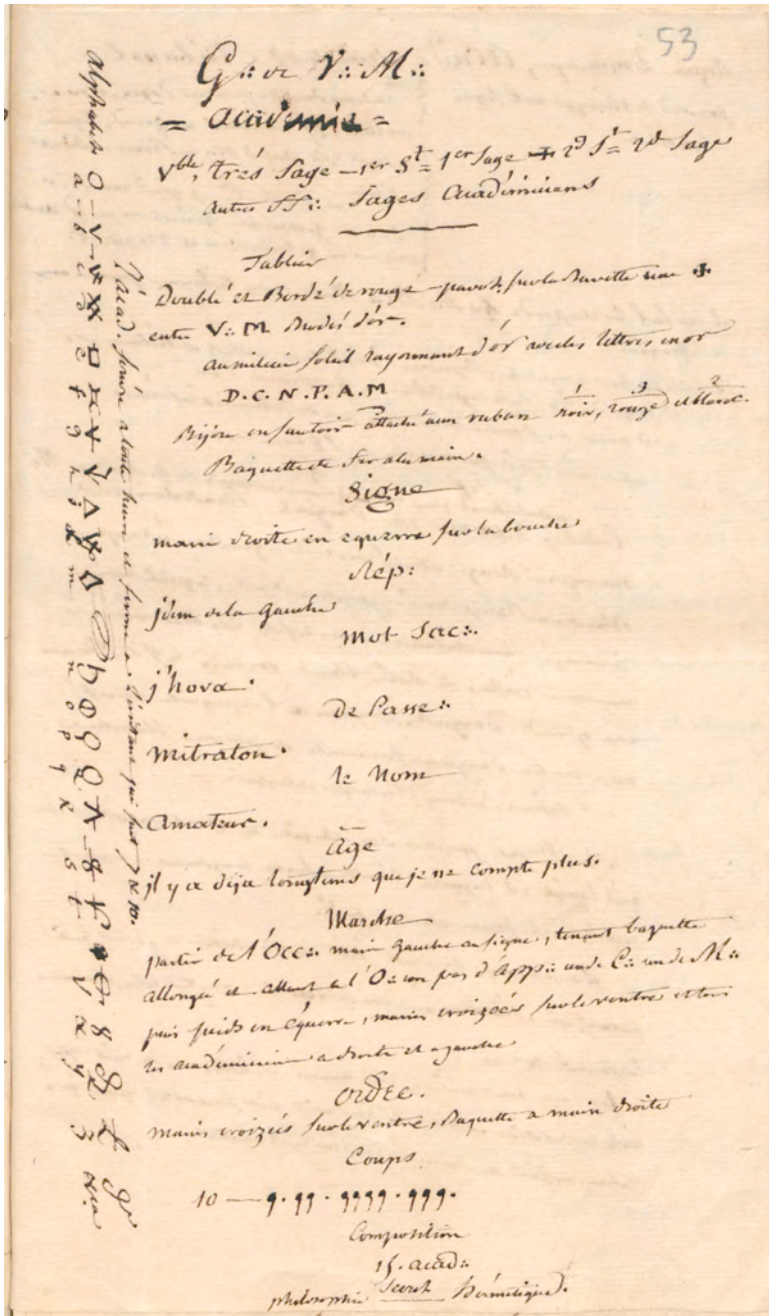 53
G∴ de V∴ M∴
= académie =
Vble, très Sage — 1er St = 1er Sage + 2d St = 2d Sage
autres SS∴ Sages Académiciens
Tablier
Doublé et Bordé de rouge — sur la Bavette une
entre V∴ M Brodés d'or.
au milieu Soleil rayonnant d'or avec les lettres en or
D. C. N. P. A. M
Bijou en sautoir attaché a un ruban noir, rouge et blanc.
1 3 2
Baguette de fer a la main.
Signe
main droite en equerre sur la bouche
Rép:
jdem de la gauche
Mot Sac∴
j'hova.
de Passe∴
mitraton.
le Nom
Amateur.
Âge
il y a déja longtems que je ne compte plus.
Marche
partir de l'Occ∴ main gauche au signe, tenant baguette
allongée et allant a l'O∴ un pas d'App∴ un de C∴ un de M∴
puis pieds en équerre, mains croizées sur le ventre et
les académiciens a droite et a gauche
Ordre.
mains croizées sur le ventre, Baguette a main droite
Coups
10 —
Composition
15. acad∴
philosophie Secret hérmétique.
alphabet
a b c d e f g h i l m n o p q r s t v x y z
l'acad. s'ouvre a toute heure et ferme a l'instant qui suit